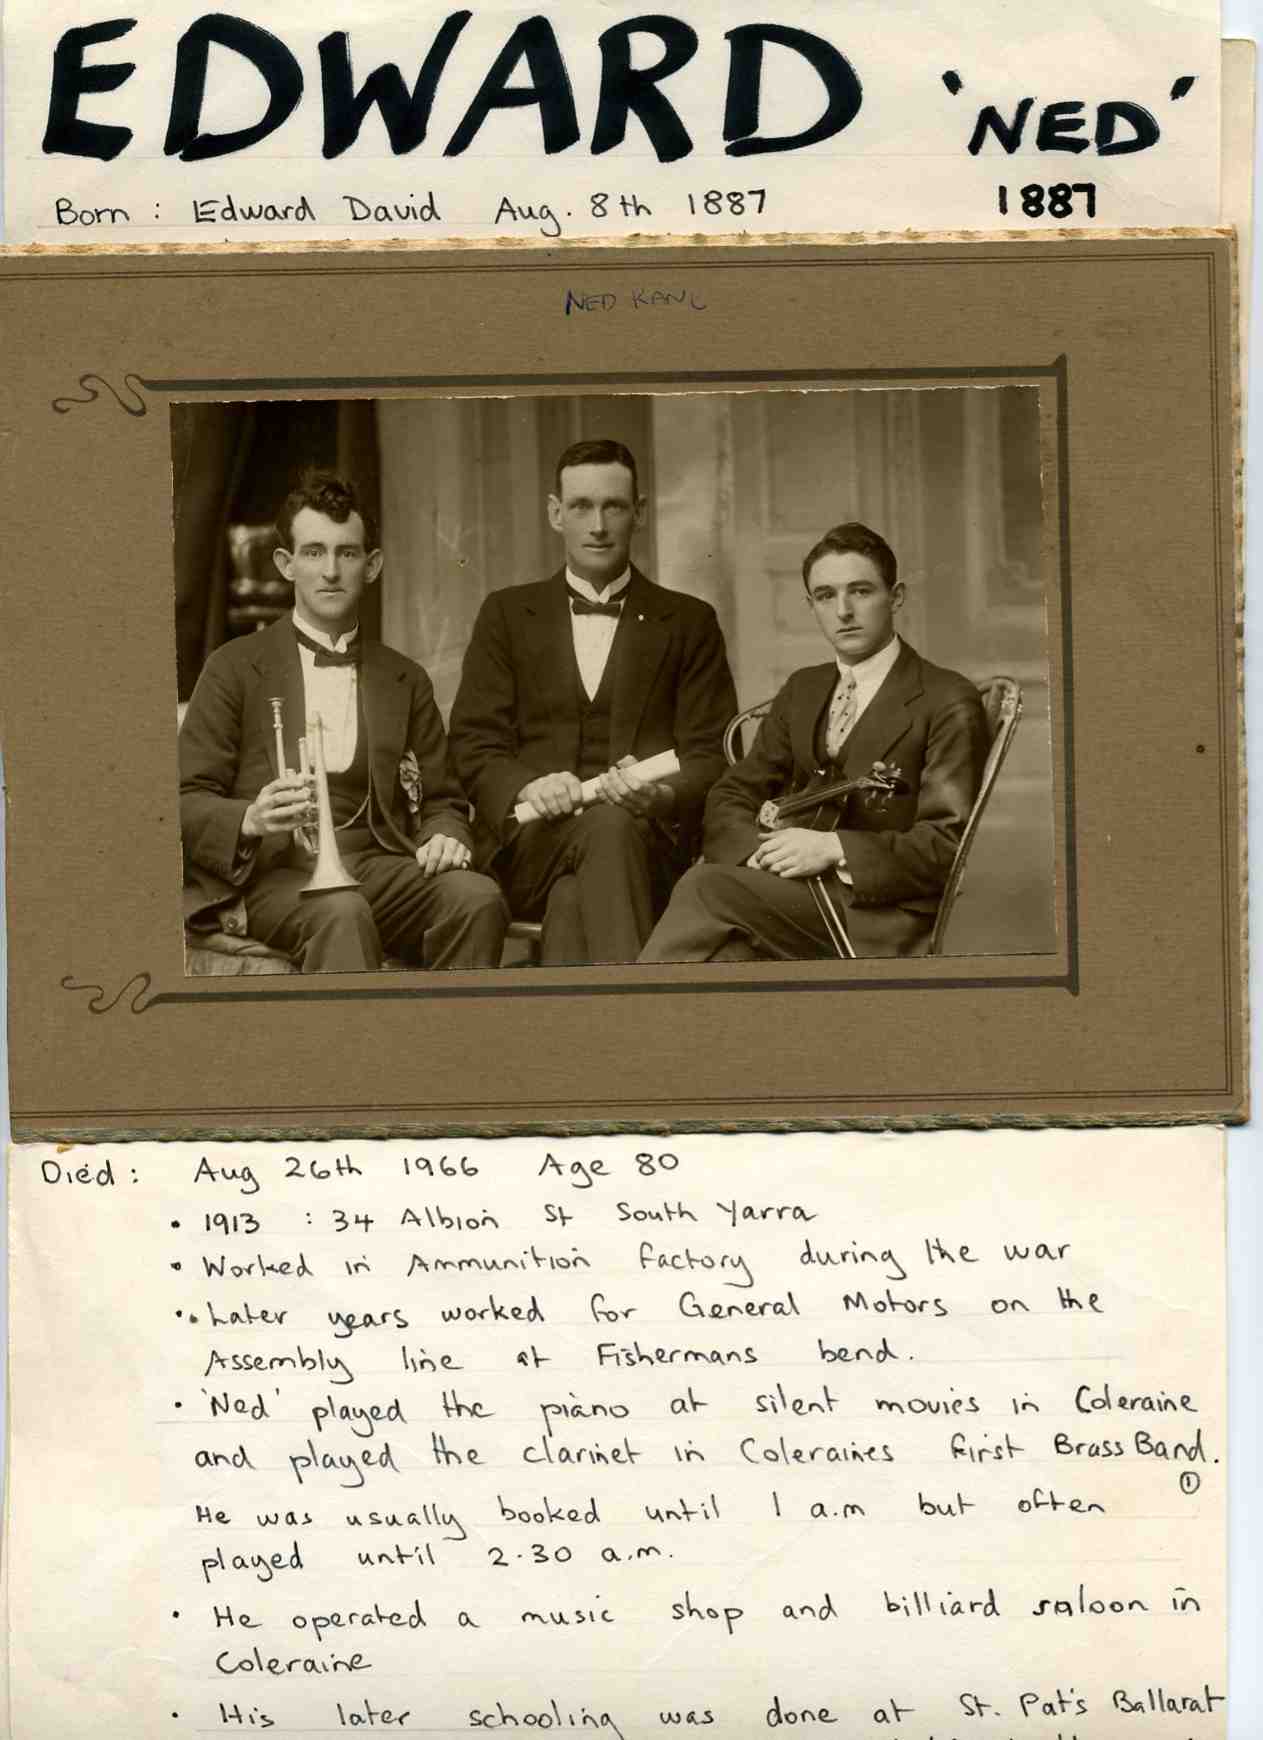 EDWARD 'NED'
Born : Edward David Aug. 8th 1887 1887
NED KANE
Died : Aug 26th 1966 Age 80
• 1913 : 34 Albion St South Yarra
• Worked in Ammunition factory during the war
• Later years worked for General Motors on the
Assembly line at Fishermans bend.
• 'Ned' played the piano at silent movies in Coleraine
and played the clarinet in Coleraines first Brass Band.
①
He was usually booked until 1 a.m but often
played until 2.30 a.m.
• He operated a music shop and billiard saloon in
Coleraine
• His later schooling was done at St. Pat's Ballarat